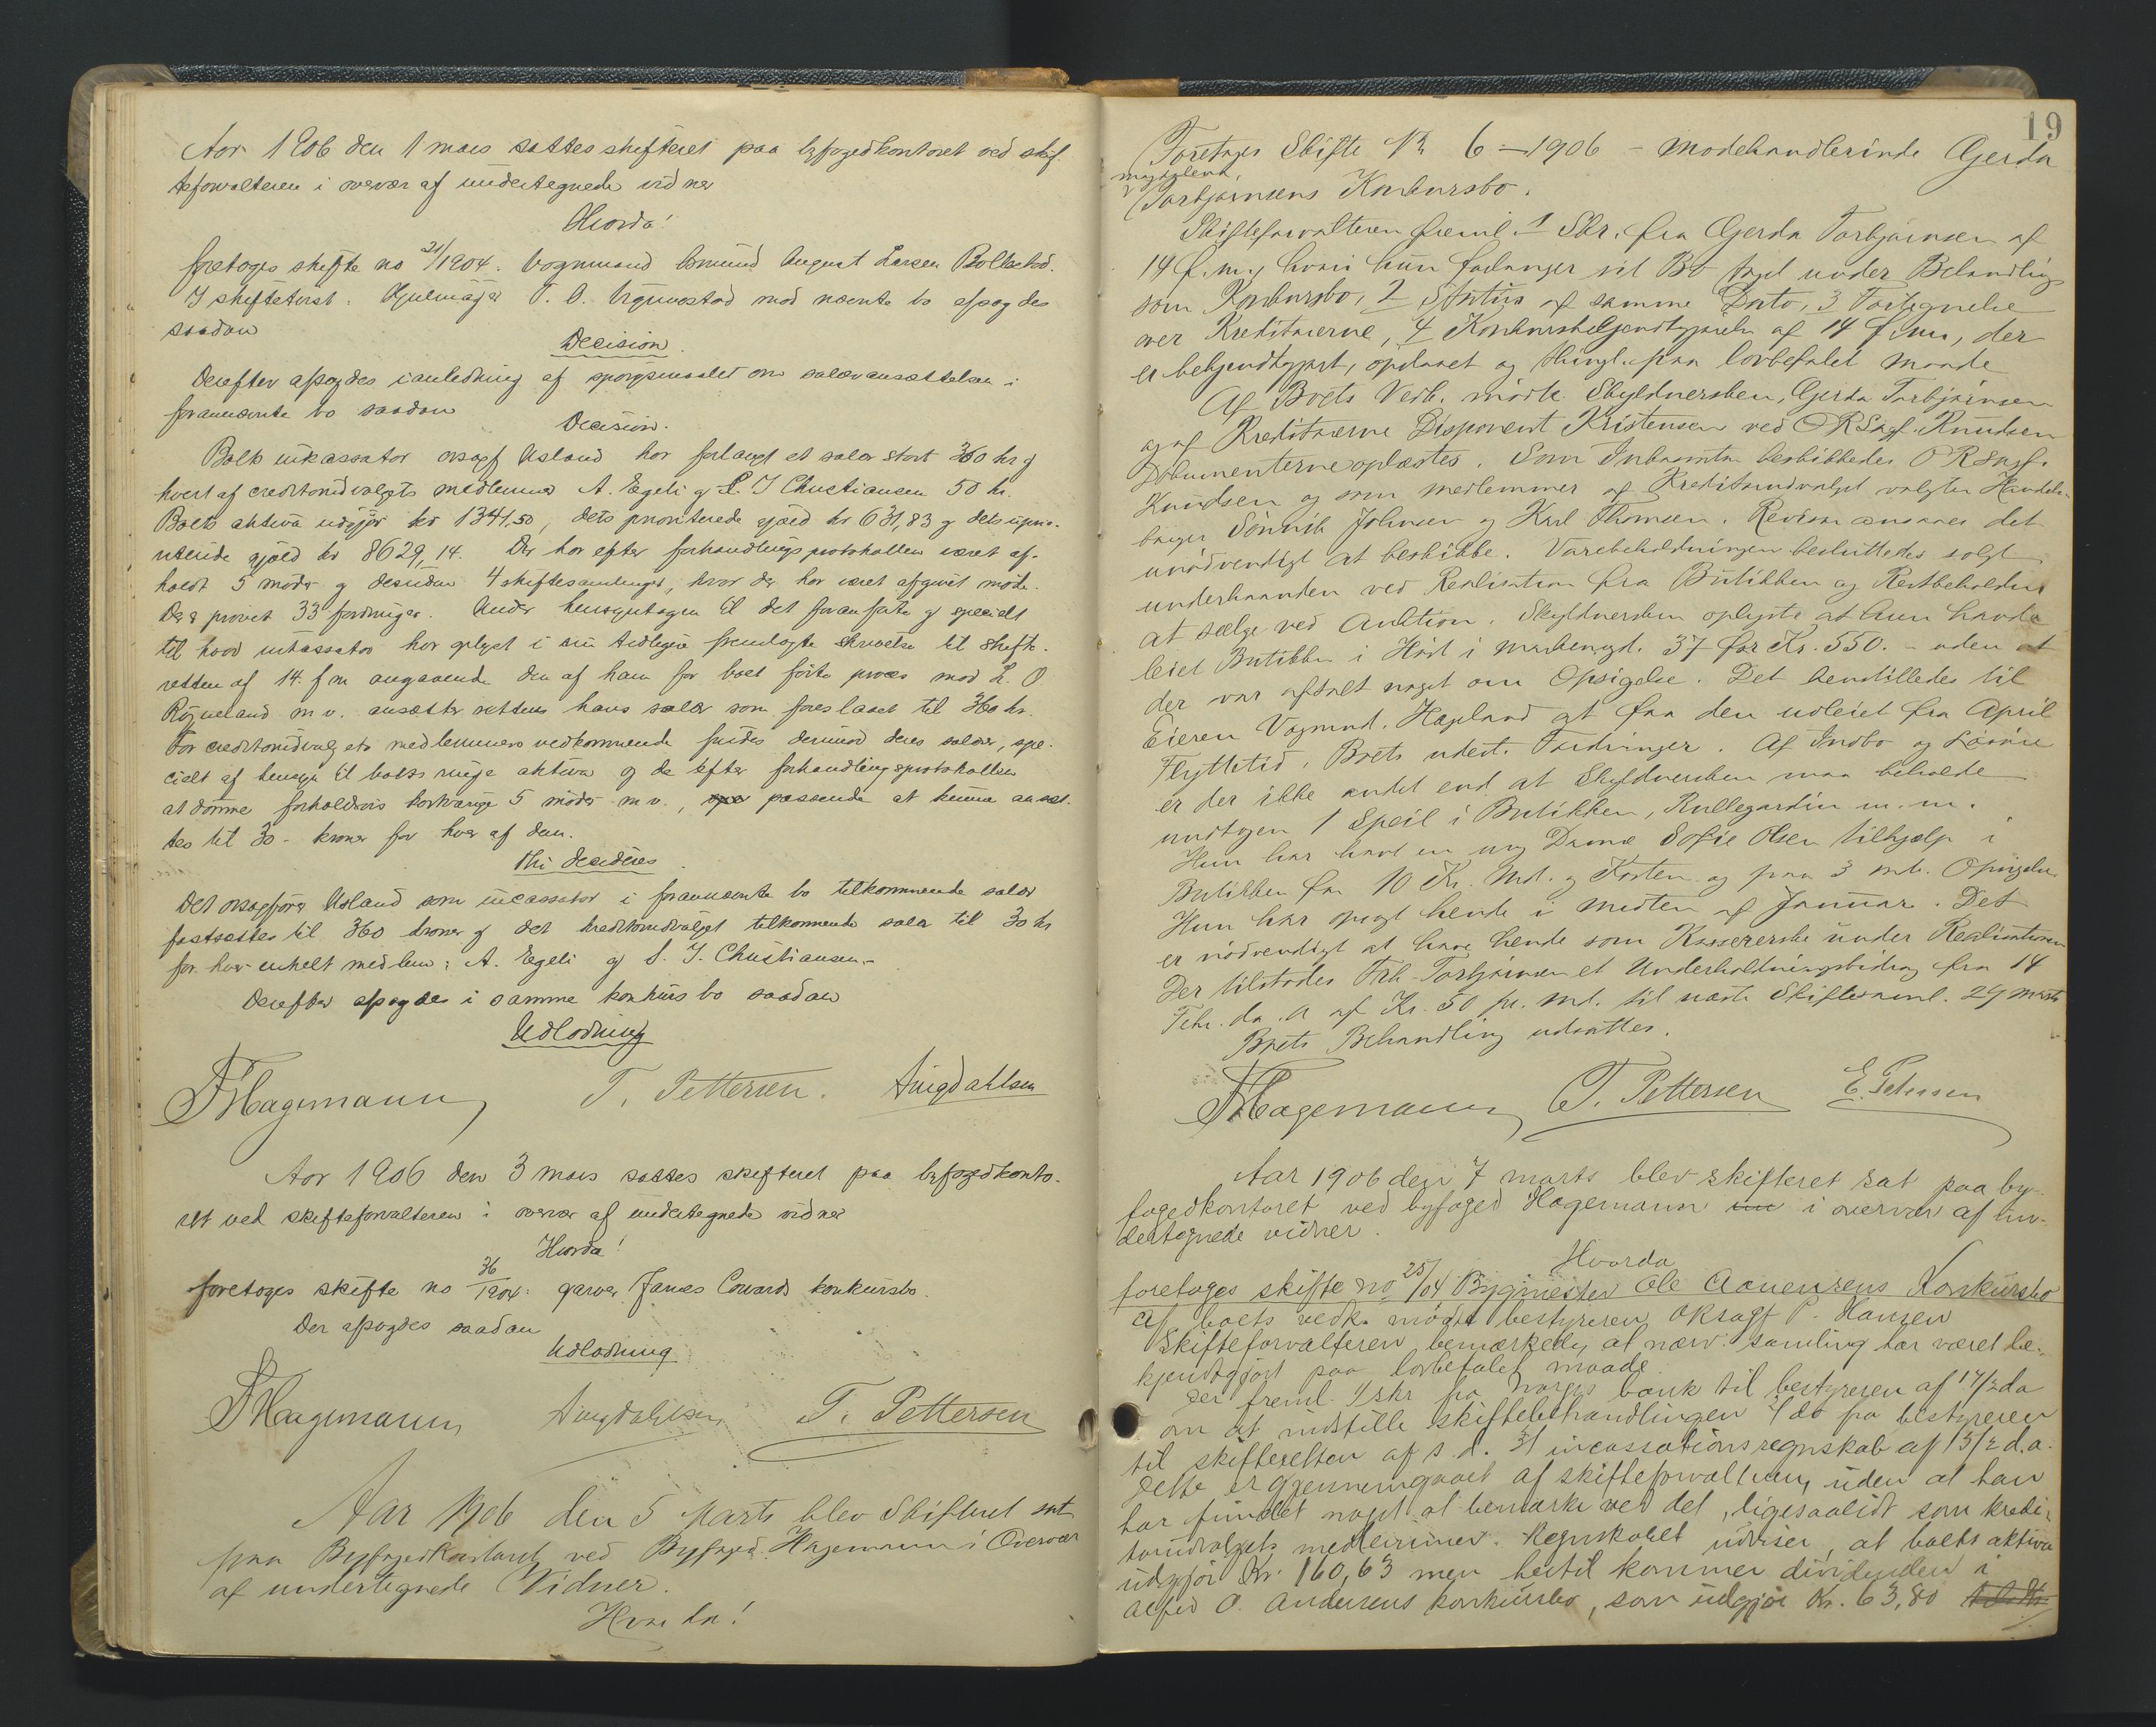 Aar 1906 den 1 mars sattes skifteret paa byfogedkontoret ved skif-
teforvalteren i overvær af undertegnede vidner
Hvorda!
foretoges skifte no 21/1904. Vognmand Osmund August Larsen Rolleslad.
I skiftetvist: Hjulmager T. O. mod nævnte bo afsagdes
saadan
Decision.
Derefter afsagdes i anledning af spørgsmaalet om salæransættelsen i
forannævnte bo saadan
Decision.
Boets inkassator orsagf Asland har forlangt et salær stort 360 kr og
hvert af creditorudvalgets medlemmer A. Egeli og S. J Christiansen 50 kr.
Boets aktiva udgjør kr 1341,50, dets prioriterede gjæld kr 631,83 og dets uprio-
riterede gjæld kr 8629,14. Der har efter forhandlingsprotokollen været af-
holdt 5 møder og desuden 4 skiftesamlinger, hvor der har været afgivet møde.
Der er prøvet 33 fordringer. Under hensyntagen til det foranførte og specielt
til hvad inkassator har oplyst i sin tidligere fremlagte skrivelse til skifte-
retten af 14 f m angaaende den af ham for boet førte proces mod L. O
Røyneland m v. ansætter retten hans salær som foreslaaet til 360 kr.
For creditorudvalgets medlemmers vedkommende findes derimod deres salær, spe-
cielt af hensyn til boets ringe aktiva og de efter forhandlingsprotokollen
at dømme forholdsvis kortvarige 5 møder m v., passende at kunne ansæt-
tes til 30 - kroner for hver af dem.
Thi decideres
Det orsagfører Asland som incassator i forannævnte bo tilkommende salær
fastsættes til 360 kroner og det kreditorudvalget tilkommende salær til 30 kr
for hver enkelt medlem: A. Egeli og S. J. Christiansen.-
Derefter afsagdes i samme konkursbo saadan
Udlodning
Hagemann T. Pettersen. Aug Dahlsen
Aar 1906 den 3 mars sattes skifteret paa byfogedkonto-
ret ved skifteforvalteren i overvær af undertegnede vidner
Hvorda!
foretoges skifte no 36/1904: garver James Cowards konkursbo.
Der afsagdes saadan
Udlodning
Hagemann Aug Dahlsen T. Pettersen
Aar 1906 den 5 Marts blev Skifteret sat
paa Byfogedkontoret ved Byfoged Hagemann i Overvær
af undertegnede Vidner.
Hvorda!
19
Foretoges Skifte No 6 - 1906 - Modehandlerinde Gerda
Magdalena
Torbjørnsens Konkursbo.
Skifteforvalteren freml. 1 Skr. fra Gerda Torbjørnsen af
14 f. m., hvori hun forlanger sit Bo taget under Behandling
som Konkursbo, 2 Status af samme Dato, 3 Fortegnelse
over Kreditorerne, 4 Konkursbekjendtgjørelse af 14 f. m., der
er bekjendtgjort, opslaaet og thingl. paa lovbefalet Maade
Af Boets Vedk. mødte Skyldnersken, Gerda Torbjørnsen
og af Kreditorerne Disponent Kristensen ved ORSagf. Knudsen
Dokumenterne oplæstes. Som Inkassator beskikkedes ORSagf.
Knudsen og som Medlemmer af Kreditorudvalget valgtes Handels-
borger Sønnik Johnsen og Karl Thomsen. Revisor ansaaes det
unødvendigt at beskikke. Varebeholdningen besluttedes solgt
underhaanden ved Realisation fra Butikken og Restbeholdn.
at sælge ved Auktion. Skyldnersken oplyste at hun havde
leiet Butikken i Høst i Markensgd. 37 for Kr. 550. - uden at
der var aftalt noget om Opsigelse. Det henstilledes til
Eieren Vognmd. Hægeland at faa den udleiet fra April
Flyttetid. Boets udest. Fordringer. Af Indbo og Løsøre
er der ikke andet end at Skyldnersken maa beholde
undtagen 1 Speil i Butikken, Rullegardin m. m.
Hun har havt en ung Dame Sofie Olsen tilhjælp i
Butikken for 10 Kr. Md. og Kosten og paa 3 md. Opsigelse
Hun har opsagt hende i Midten af Januar. Det
er nødvendigt at have hende som Kassererske under Realisationen
Der tilstodes Frk. Torbjørnsen et Underholdningsbidrag fra 14
Febr. da. A af Kr. 50 pr. Md. til næste Skiftesaml. 29 Marts
Boets Behandling udsattes.
Hagemann T. Pettersen E. Petersen
Aar 1906 den 7 marts blev skifteret sat paa by-
fogedkontoret ved byfoged Hagemann i overvær af un-
dertegnede vidner.
Hvorda
foretoges skifte no 25/04 Bygmester Ole Aanensens Konkursbo
Af boets vedk. mødte bestyreren ORsagf P. Hansen
Skifteforvalteren bemærkede, at nærv. samling har været be-
kjendtgjort paa lovbefalet maade.
Der freml. 1/ skr fra Norges bank til bestyreren af 17/2 da
om at indstille skiftebehandlingen 2/ do fra bestyreren
til skifteretten af s. d. 3/ incassationsregnskab af 15/2 d. a.
Dette er gjennemgaaet af skifteforvalteren, uden at han
har fundet noget at bemærke ved det, ligesaalidt som kredi-
torudvalgets medlemmer. Regnskabet udviser, at boets aktiva
udgjør Kr. 160,63 men hertil kommer dividenden i
Alfred O. Andersens konkursbo, som udgjør Kr. 63,80